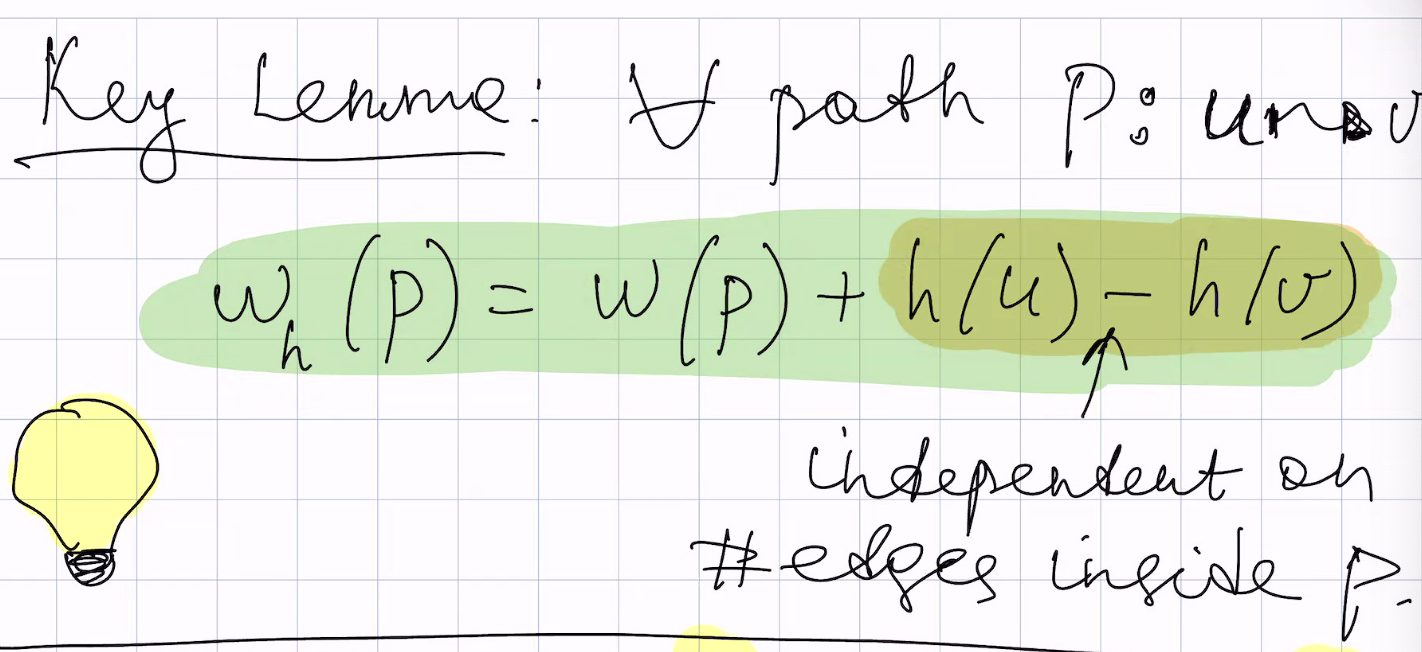 Key Lemma: ∀ path P: u⇝v
w_h(p) = w(p) + h(u) - h(v)
↑
independent on
#edges inside p.